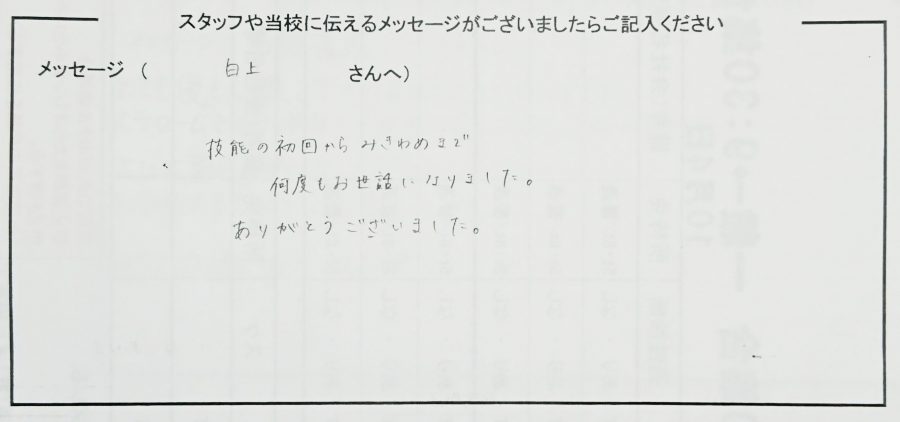 スタッフや当校に伝えるメッセージがございましたらご記入ください
メッセージ ( 白上 さんへ)
技能の初回からみきわめまで
何度もお世話になりました。
ありがとうございました。